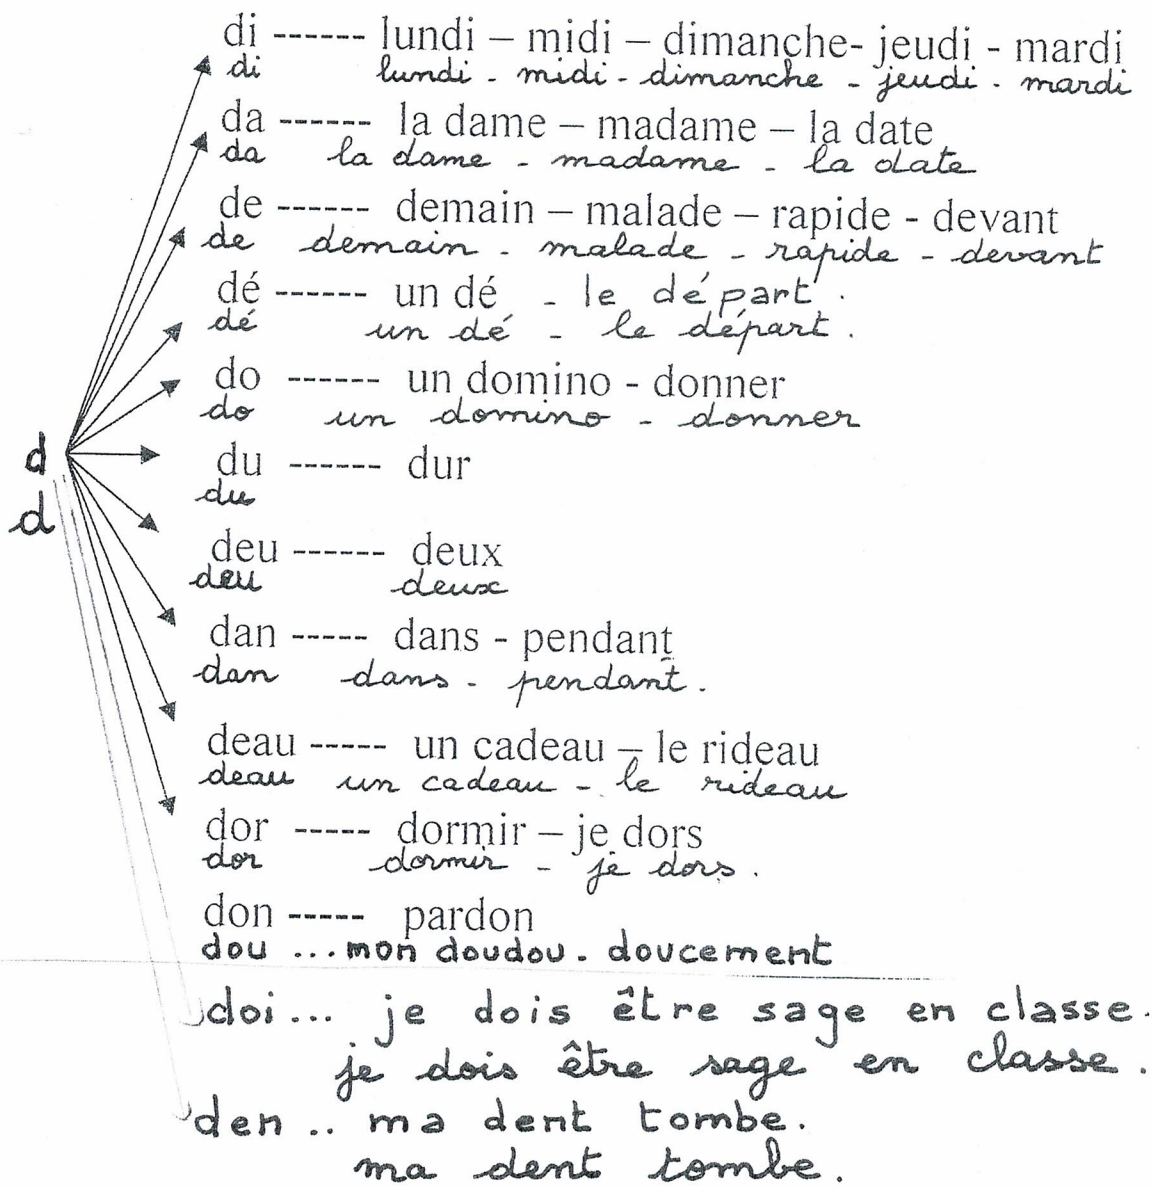 di ------ lundi – midi – dimanche- jeudi - mardi
di lundi - midi - dimanche - jeudi - mardi
da ------ la dame – madame – la date
da la dame - madame - la date
de ------ demain – malade – rapide - devant
de demain - malade - rapide - devant
dé ------ un dé - le départ.
dé un dé - le départ.
do ------ un domino - donner
do un domino - donner
d du ------ dur
d du
deu ------ deux
deu deux
dan ----- dans - pendant
dan dans - pendant.
deau ----- un cadeau – le rideau
deau un cadeau - le rideau
dor ----- dormir – je dors
dor dormir - je dors.
don ----- pardon
dou ... mon doudou. doucement
doi ... je dois être sage en classe.
je dois être sage en classe.
den .. ma dent tombe.
ma dent tombe.